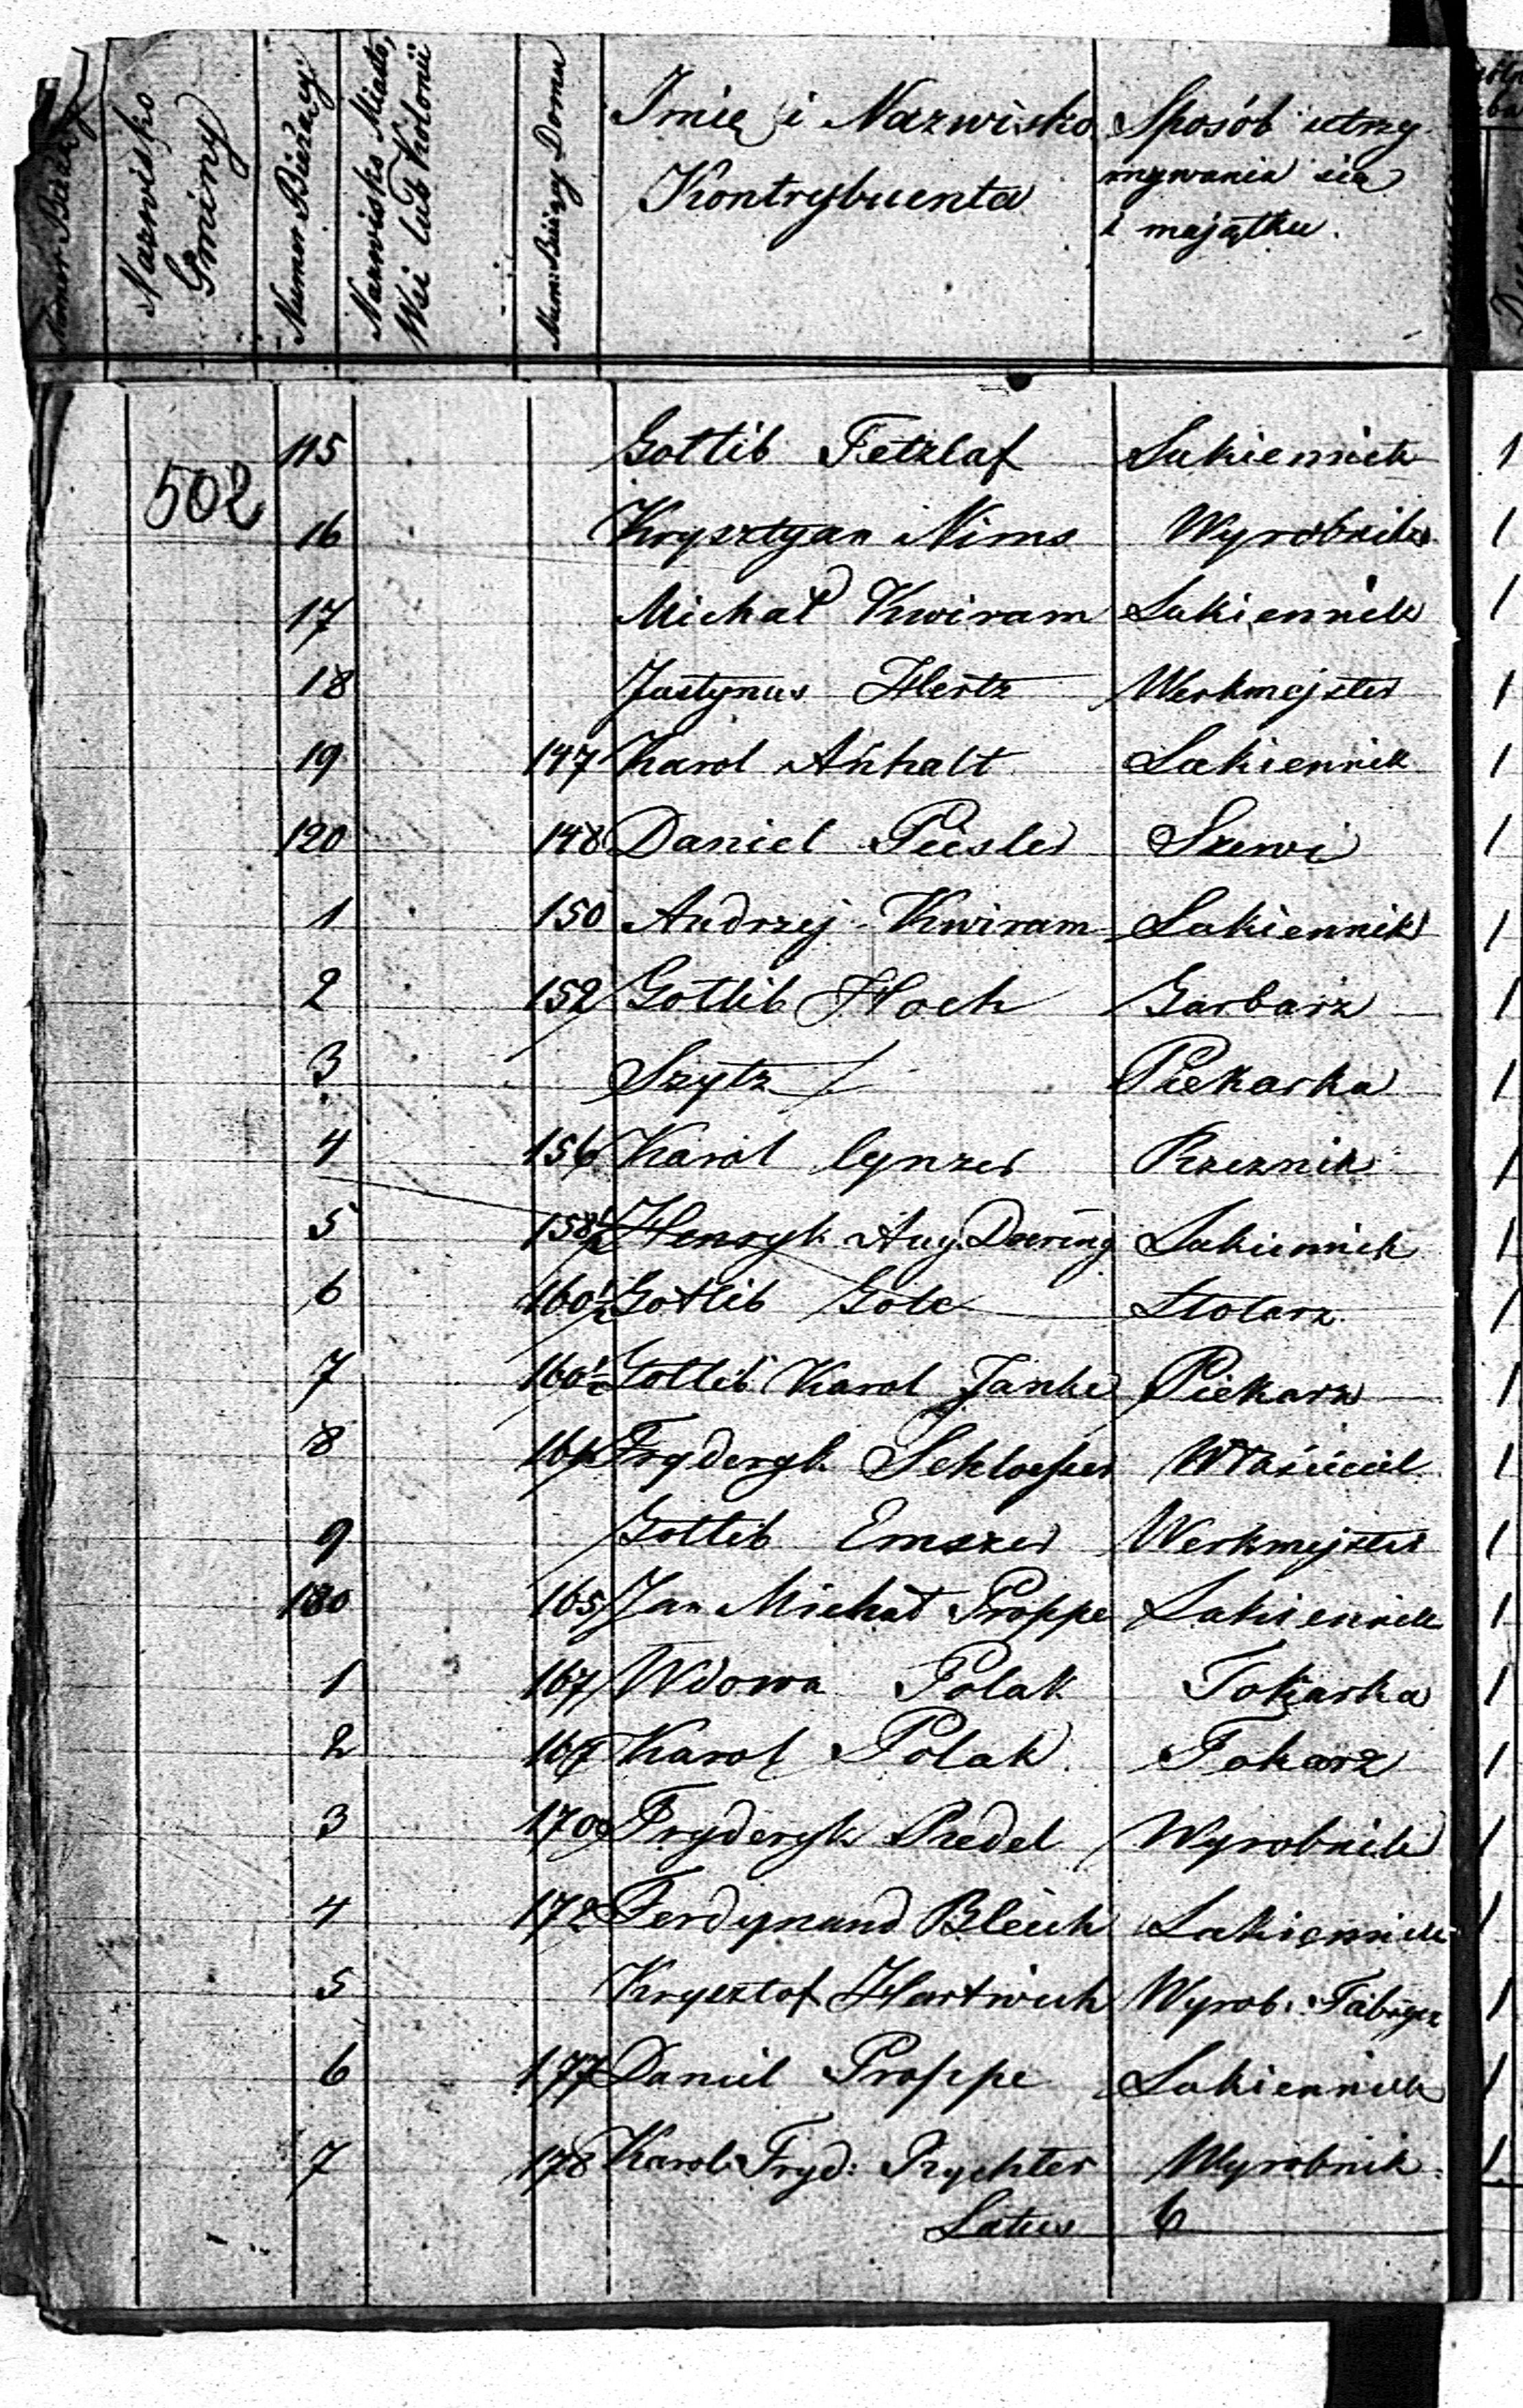 Numer Bieżący
Nazwisko Gminy
Numer Bieżący
Nazwisko Miasta, Wsi lub Kolonii
Num: Bieżący Domu
Imię i Nazwisko Kontrybuenta
Sposób utrzymywania się i majątku.
502
115 Gottlib Fetzlaf Sukiennik 1
16 Krysztyan Nims Wyrobnik 1
17 Michał Kwiram Sukiennik 1
18 Justynus Hertz Werkmejster 1
19 147 Karol Anhalt Sukiennik 1
120 148 Daniel Peisler Szewc 1
1 150 Andrzej Kwiram Sukiennik 1
2 152 Gotlib Hoch Garbarz 1
3 Szytz Piekarka 1
4 156 Karol Cynzer Rzeznik 1
5 158½ Henryk Aug. Doering Sukiennik 1
6 160½ Gotlib Gole Stolarz 1
7 160½ Gottlib Karol Janke Piekarz 1
8 Frydryk Schloesser Właściciel 1
9 Gottlib Emszer Werkmejster 1
130 165 Jan Michał Proppe Sukiennik 1
1 167 Wdowa Polak Tokarka 1
2 167 Karol Polak Tokarz 1
3 170 Fryderyk Predel Wyrobnik 1
4 172 Ferdynand Bleich Sukiennik 1
5 Krysztof Hartwich Wyrob: Fabrycz 1
6 177 Daniel Proppe Sukiennik 1
7 178 Karol Fryd: Rychter Wyrobnik 1
Latus 6